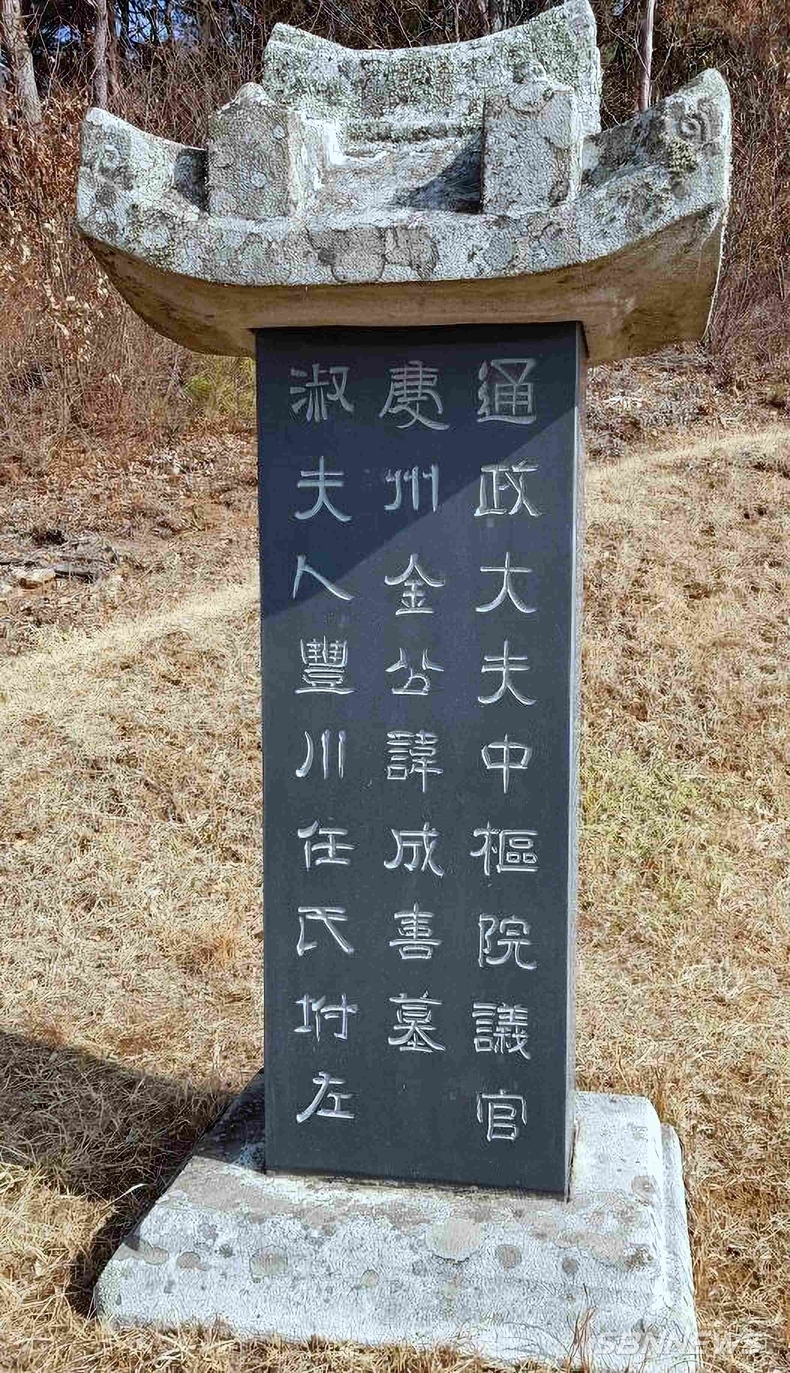 通政大夫中樞院議官
慶州金公諱成善墓
淑夫人豐川任氏坿左
SBNNEWS